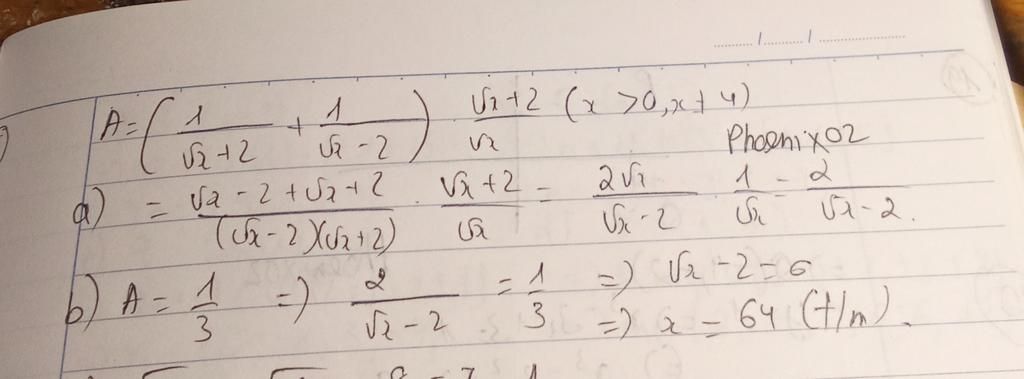 A = ( 1/(√x+2) + 1/(√x-2) ) . (√x+2)/√x (x >0, x ≠ 4)
Phoenix02
a) = (√x - 2 + √x + 2)/((√x-2)(√x+2)) . (√x+2)/√x = 2√x/(√x-2) 1/√x = 2/(√x-2).
b) A = 1/3 => 2/(√x-2) = 1/3 => √x - 2 = 6
=> x = 64 (t/m).